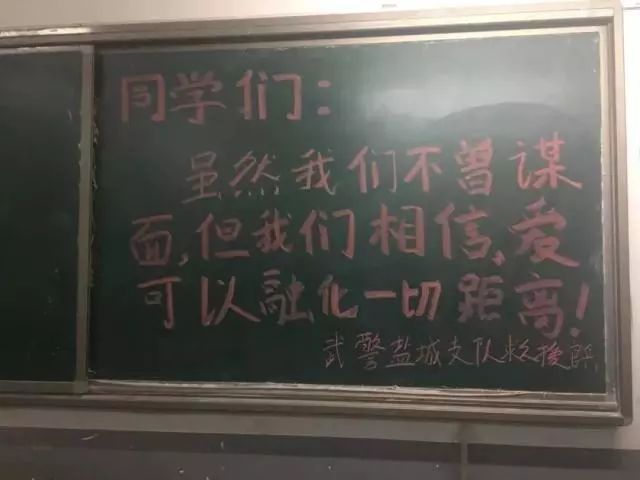 同学们：
虽然我们不曾谋
面,但我们相信,爱
可以融化一切距离!
武警盐城支队救援队